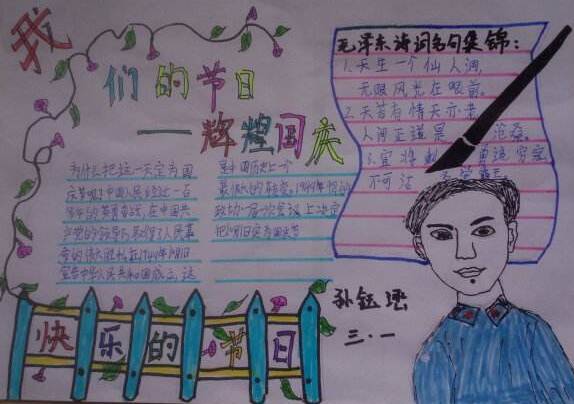 我
们的节日
——辉煌国庆
毛泽东诗词名句集锦：
1.天生一个仙人洞，
无限风光在眼前。
2.天若有情天亦老，
人间正道是 沧桑。
3.宜将剩 勇追穷寇
不可沽
为什么把这一天定为国
庆节呢？中国人民经过一百
多年的英勇奋战，在中国共
产党的领导下，取得了人民革
命的伟大胜利在1949年10月1日
宣告中华人民共和国成立，这
是中国历史上一个
最伟大的转变。1949年
致 一届一次会议上决定
把10月1日定为国庆节
孙钰
三·一
快乐的节日